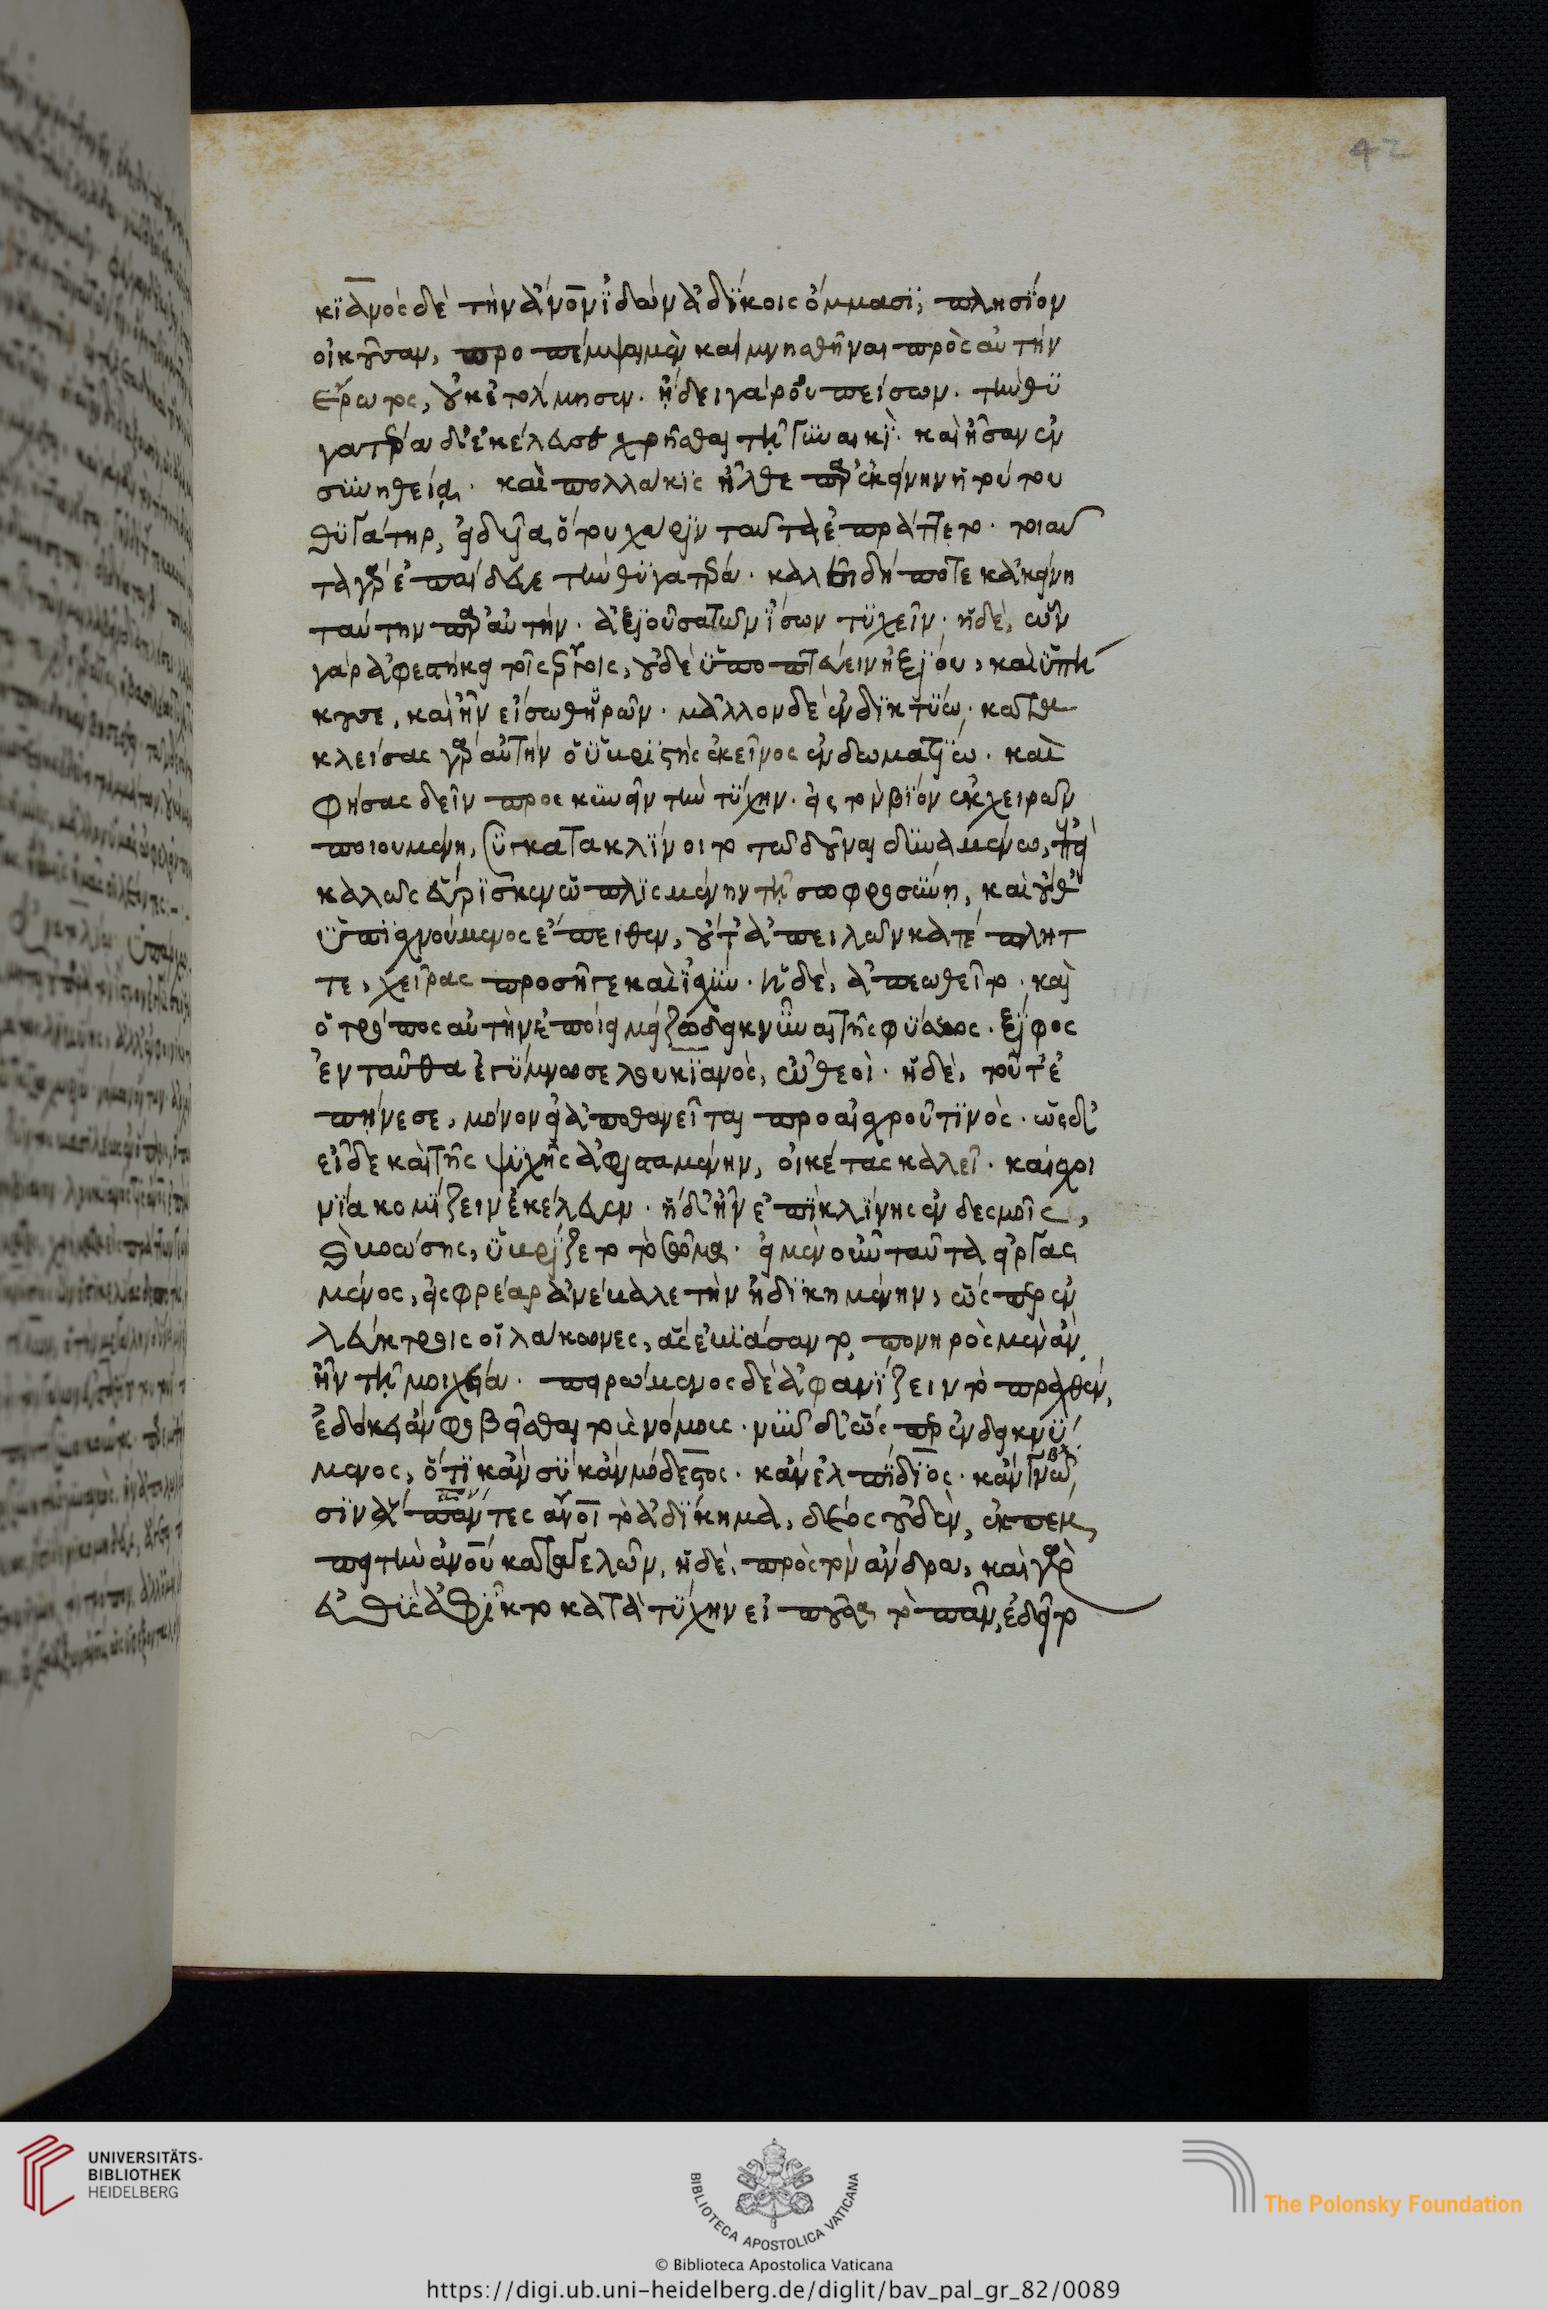 42
κιανὸς δὲ τὴν ἄνο̅ν ἰδὼν ἀδίκοις ὄμμασι, πλησίον
οἰκοῦσαν, προπέμψαι μὲν καὶ μνησθῆναι πρὸς αὐτὴν
ἔρωτος, οὐκ ἐτόλμησεν. ᾔδει γὰρ οὐ πείσων. τὴν θυ
γατέρα δ' ἐκέλευσε χρῆσθαι τῇ γυναικί. καὶ ἦσαν ἐν
συνηθείᾳ. καὶ πολλάκις ἦλθε παρ' ἐκείνην ἡ τούτου
θυγάτηρ, εἰδυῖα ὅτου χάριν ταῦτα ἐπράττετο. τοιαῦ
τα γὰρ ἐπαίδευε τὴν θυγατέρα. καλεῖ δή ποτε κἀκείνη
ταύτην παρ' αὑτήν. ἀξιοῦσα τῶν ἴσων τυχεῖν. ἡ δὲ,
γὰρ ἀφειστήκει τοῖς, οὐδὲ ὑποπτεύειν ἠξίου, καὶ ὑπή
κουσε, καὶ ἦν εἴσω θυρῶν. μᾶλλον δὲ ἐν δικτύῳ. κατα
κλείσας γὰρ αὐτὴν ὁ ὑβριστὴς ἐκεῖνος ἐν δωματίῳ. καὶ
φήσας δεῖν προσκυνεῖν τὴν τύχην. εἰ τὸν βίον ἐκ χειρῶν
ποιουμένη, συγκατακλίνοιτο τῷ δοῦναι δυναμένῳ,
καλῶς εὕρισκεν ὡπλισμένην τῇ σωφροσύνῃ, καὶ οὔθ'
ὑπισχνούμενος ἔπειθεν, οὔτ' ἀπειλῶν κατέπλητ
τε, χεῖρας προσῆγε καὶ ἰσχύν. ἡ δὲ, ἀπεωθεῖτο. καὶ
ὁ τρόπος αὐτὴν ἐποίει μείζω δεικνῦναι τῆς φύσεως. ξίφος
ἐνταῦθα ἐγύμνωσε λουκιανὸς, ὦ θεοί. ἡ δὲ, τοῦτ' ἐ
πῄνεσε, μόνον εἰ ἀποθανεῖται πρὸ αἰσχροῦ τινός. ὡς δ'
εἶδε καὶ τῆς ψυχῆς ἀφισταμένην, οἰκέτας καλεῖ. καὶ σχοι
νία κομίζειν ἐκέλευεν. ἡ δ' ἦν ἐπὶ κλίνης ἐν δεσμοῖς,
βοώσης, ὑβρίζετο τὸ σῶμα. εἰ μὲν οὖν ταῦτα εἰργασ
μένος, εἰς φρέαρ ἐνέβαλε τὴν ἠδικημένην, ὥσπερ ἐν
λεύκτροις οἱ λάκωνες, ἃς ἐβιάσαντο, πονηρὸς μὲν ἂν
ἦν τῇ μοιχείᾳ. πειρώμενος δὲ ἀφανίζειν τὸ πραχθέν,
ἐδόκει ἂν φοβεῖσθαι τοὺς νόμους. νῦν δ' ὥσπερ ἐνδεικνύ
μενος, ὅτι κἂν σὺ κἂν μόδεστος. κἂν ἐλπίδιος. κἂν γνῶ
σιν ἅπαντες ἄνο̅ι τὸ ἀδίκημα, δέος οὐδὲν, ἐκπέμ
πει τὴν ἄνο̅ν καταγελῶν. ἡ δὲ, πρὸς τὸν ἄνδρα, καὶ γὰρ
εὐθὺς ἀφῖκτο κατὰ τύχην εἰποῦσα τὸ πᾶν, ἐδεῖτο
UNIVERSITÄTS-
BIBLIOTHEK
HEIDELBERG
BIBLIOTECA APOSTOLICA VATICANA
The Polonsky Foundation
© Biblioteca Apostolica Vaticana
https://digi.ub.uni-heidelberg.de/diglit/bav_pal_gr_82/0089